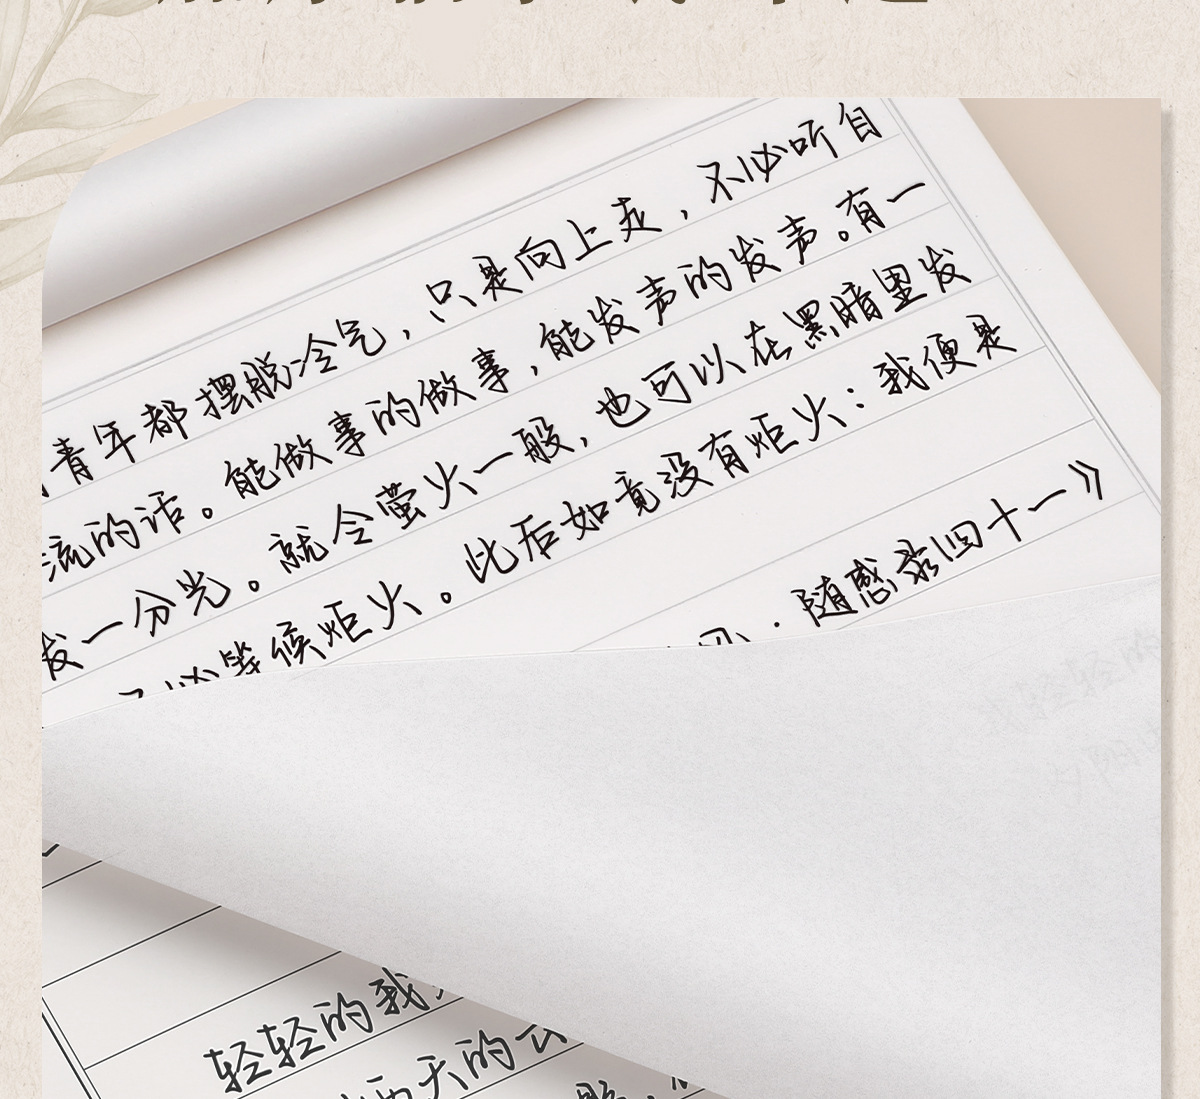 青年都摆脱冷气，只是向上走，不必听自
流的话。能做事的做事，能发声的发声。有一
发一分光。就令萤火一般，也可以在黑暗里发
不必等候炬火。此后如竟没有炬火：我便是
随感录四十一》
轻轻的我
天的云